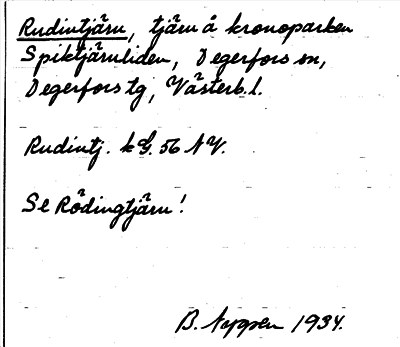 Rudintjärn, tjärn å kronoparken
Spiktjärnliden, Degerfors sn,
Degerfors tg, Västerb. l.
Rudintj. kG. 56 NV.
Se Rödingtjärn!
B. 1934.